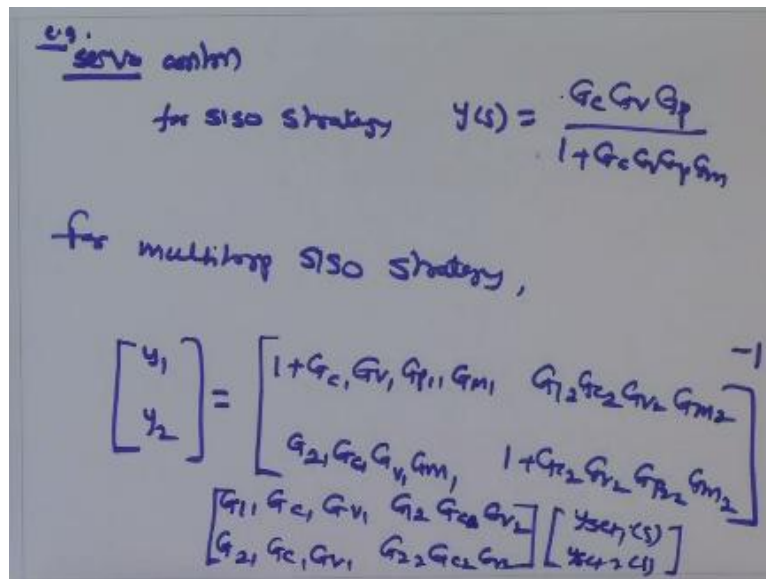 e.g.
servo control
for SISO strategy y(s) = GcGvGp / 1+GcGvGpGm
for multiloop SISO strategy,
[y1 y2] = [1+Gc1Gv1Gp11Gm1 G12Gc2Gv2Gm2
G21Gc1Gv1Gm1 1+Gc2Gv2Gp22Gm2]-1
[G11Gc1Gv1 G12Gc2Gv2
G21Gc1Gv1 G22Gc2Gv2] [yset1(s) yset2(s)]